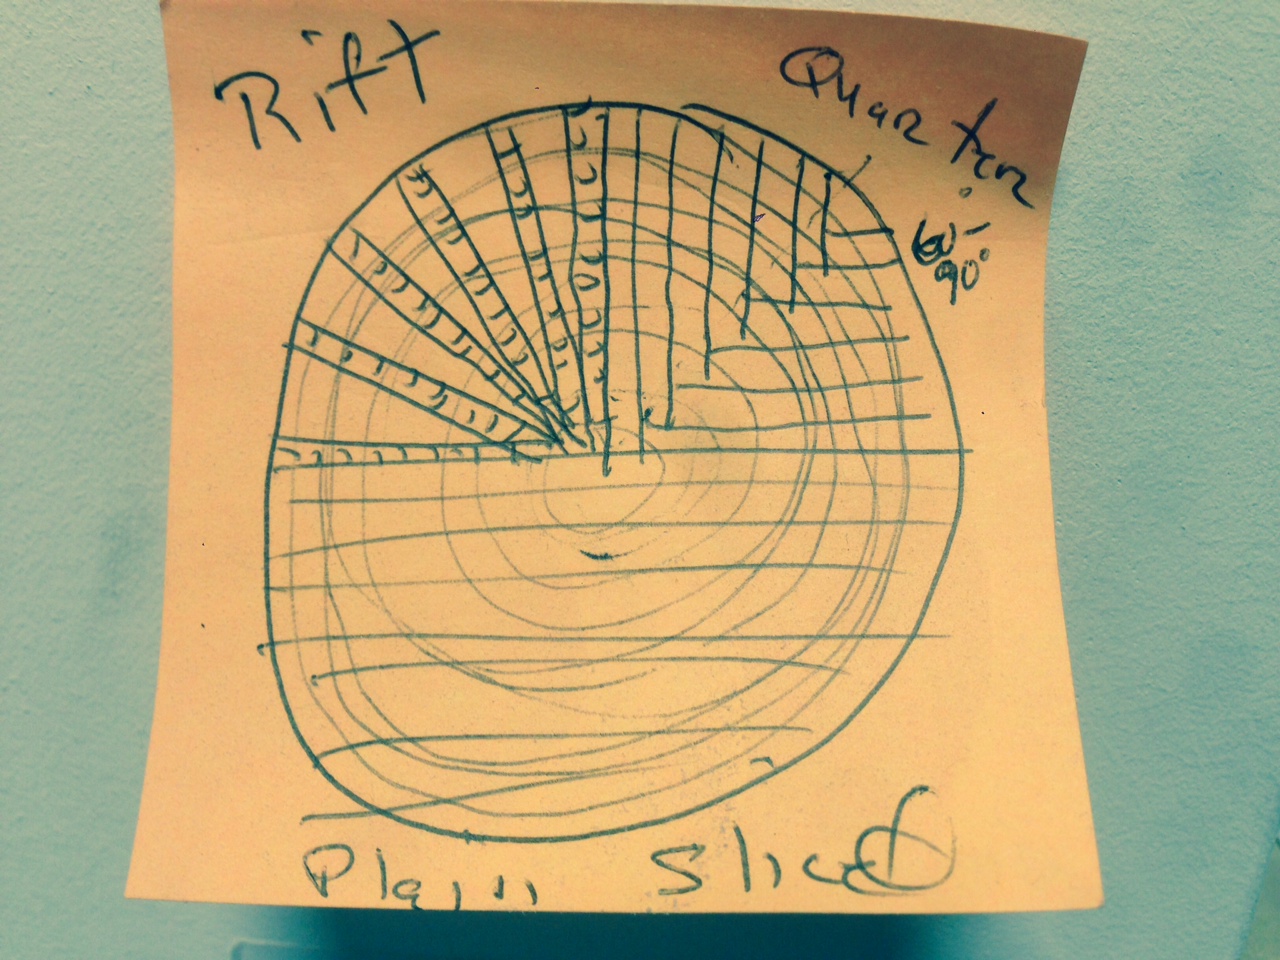 Rift
Quarter
60-
90°
Plain Sliced